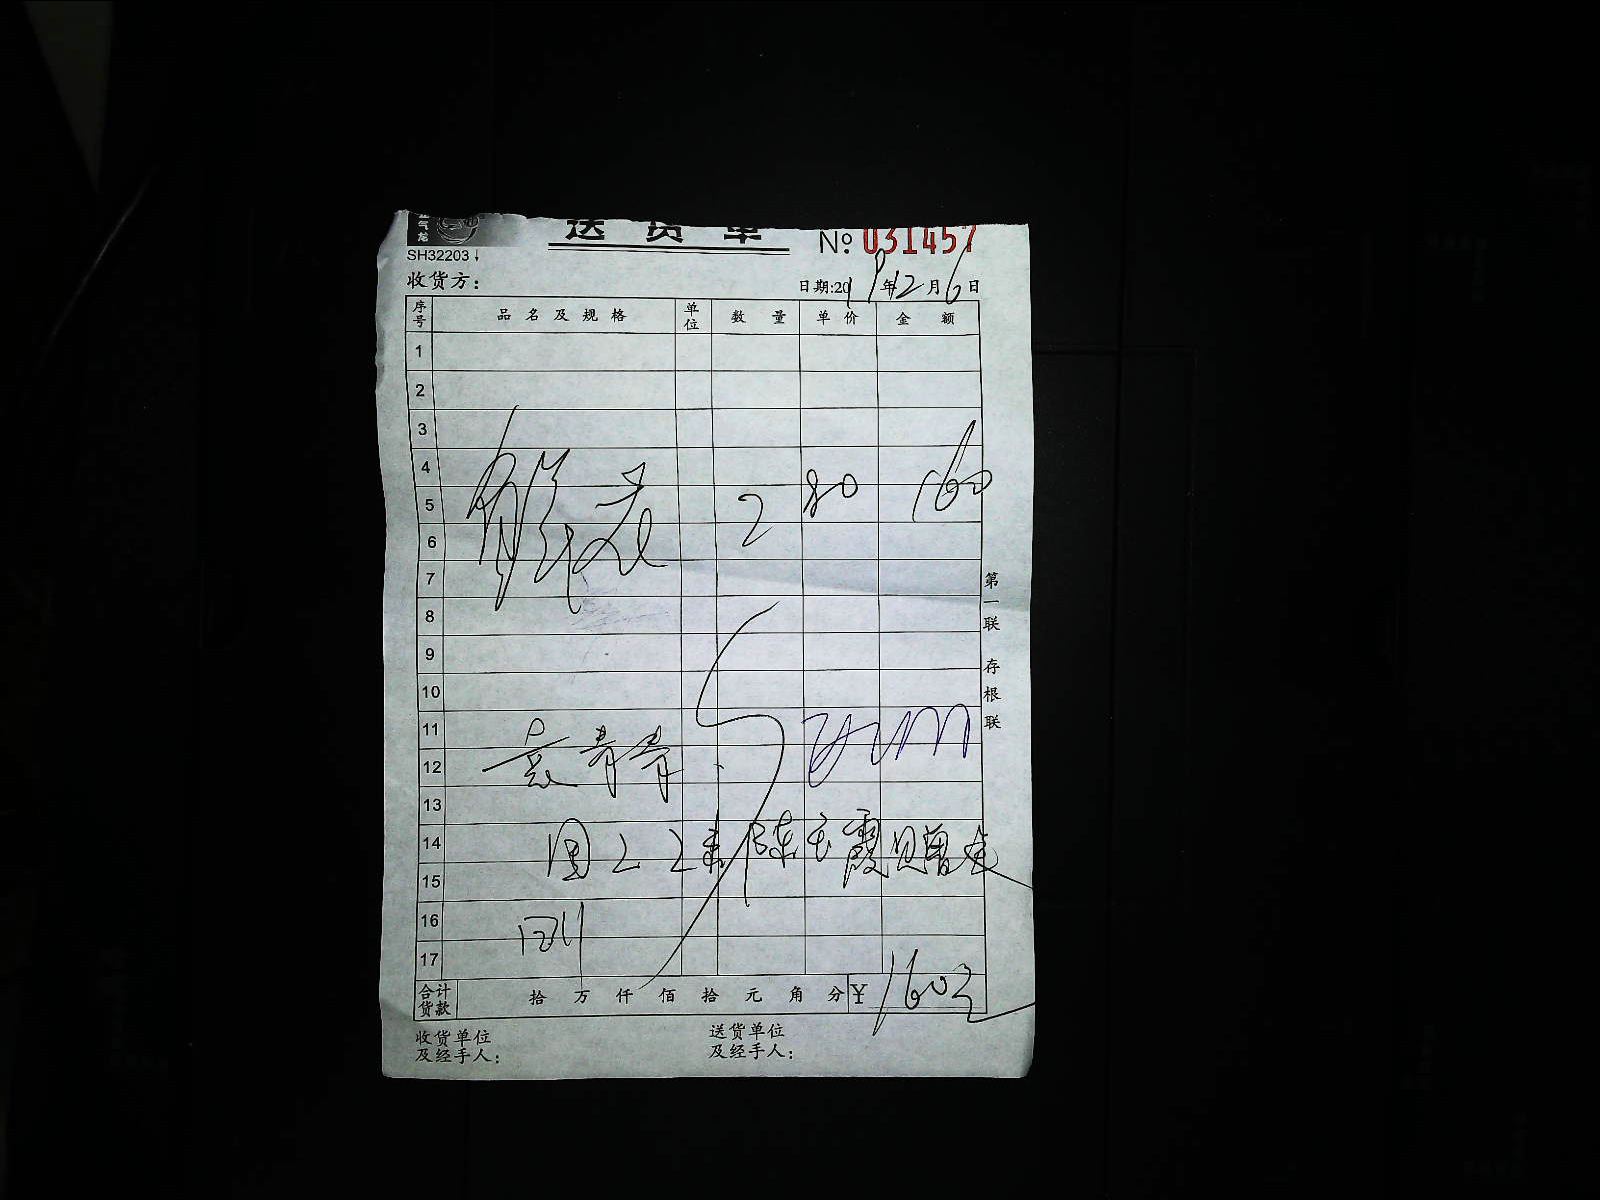 送 货 单 № 031457
SH32203
收货方: 日期:2019年12月6日
序号 品名及规格 单位 数量 单价 金额
1
2
3
4
5 2 80 160
6
7
8
9
10
11
12 袁青青
13
14 陈玉霞
15
16
17
合计货款 拾 万 仟 佰 拾 元 角 分 ¥ 160元
收货单位及经手人: 送货单位及经手人:
第一联 存根联